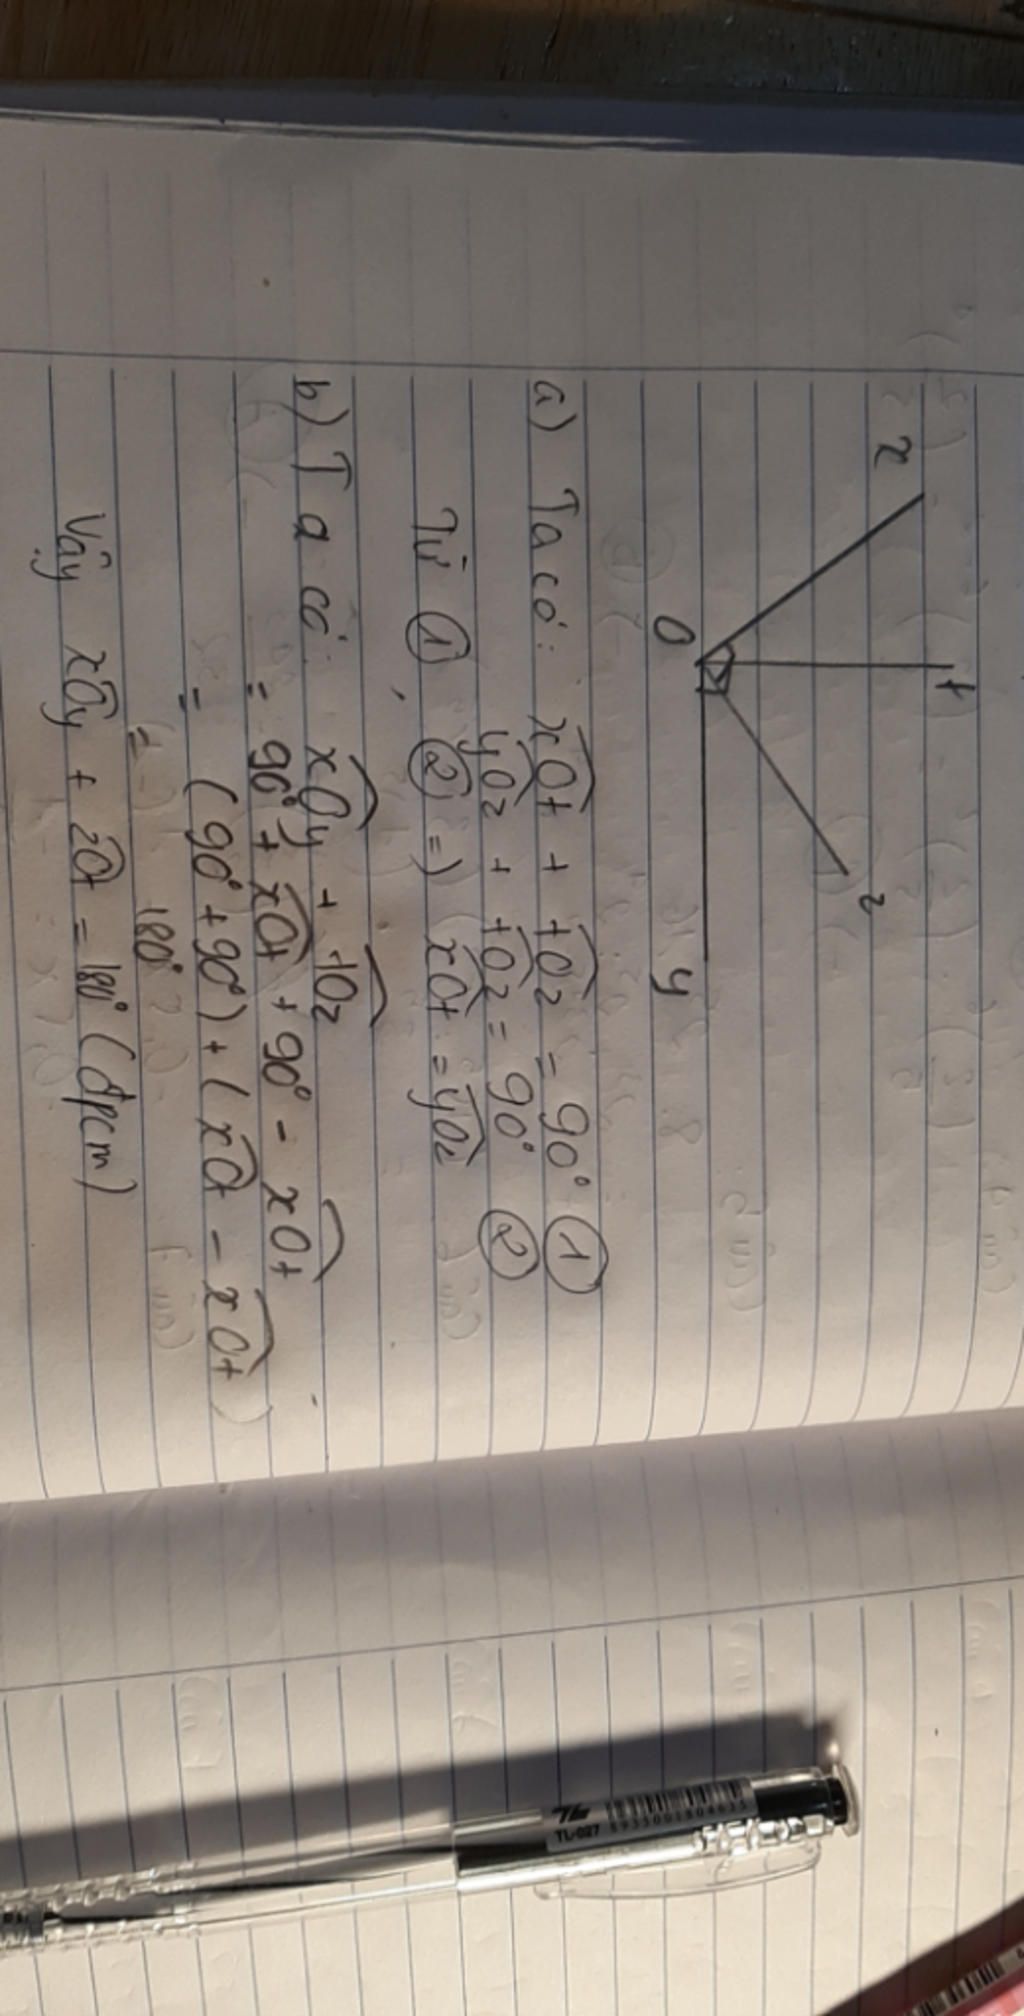 x
t
z
O
y
a) Ta có: xOt + tOz = 90° ①
yOz + tOz = 90° ②
Từ ① , ② => xOt = yOz
b) Ta có: xOy + tOz
= 90° + xOt + 90° - xOt
= (90° + 90°) + (xOt - xOt)
= 180°
Vậy xOy + zOt = 180° (đpcm)
TL
TL-027
8935001804635